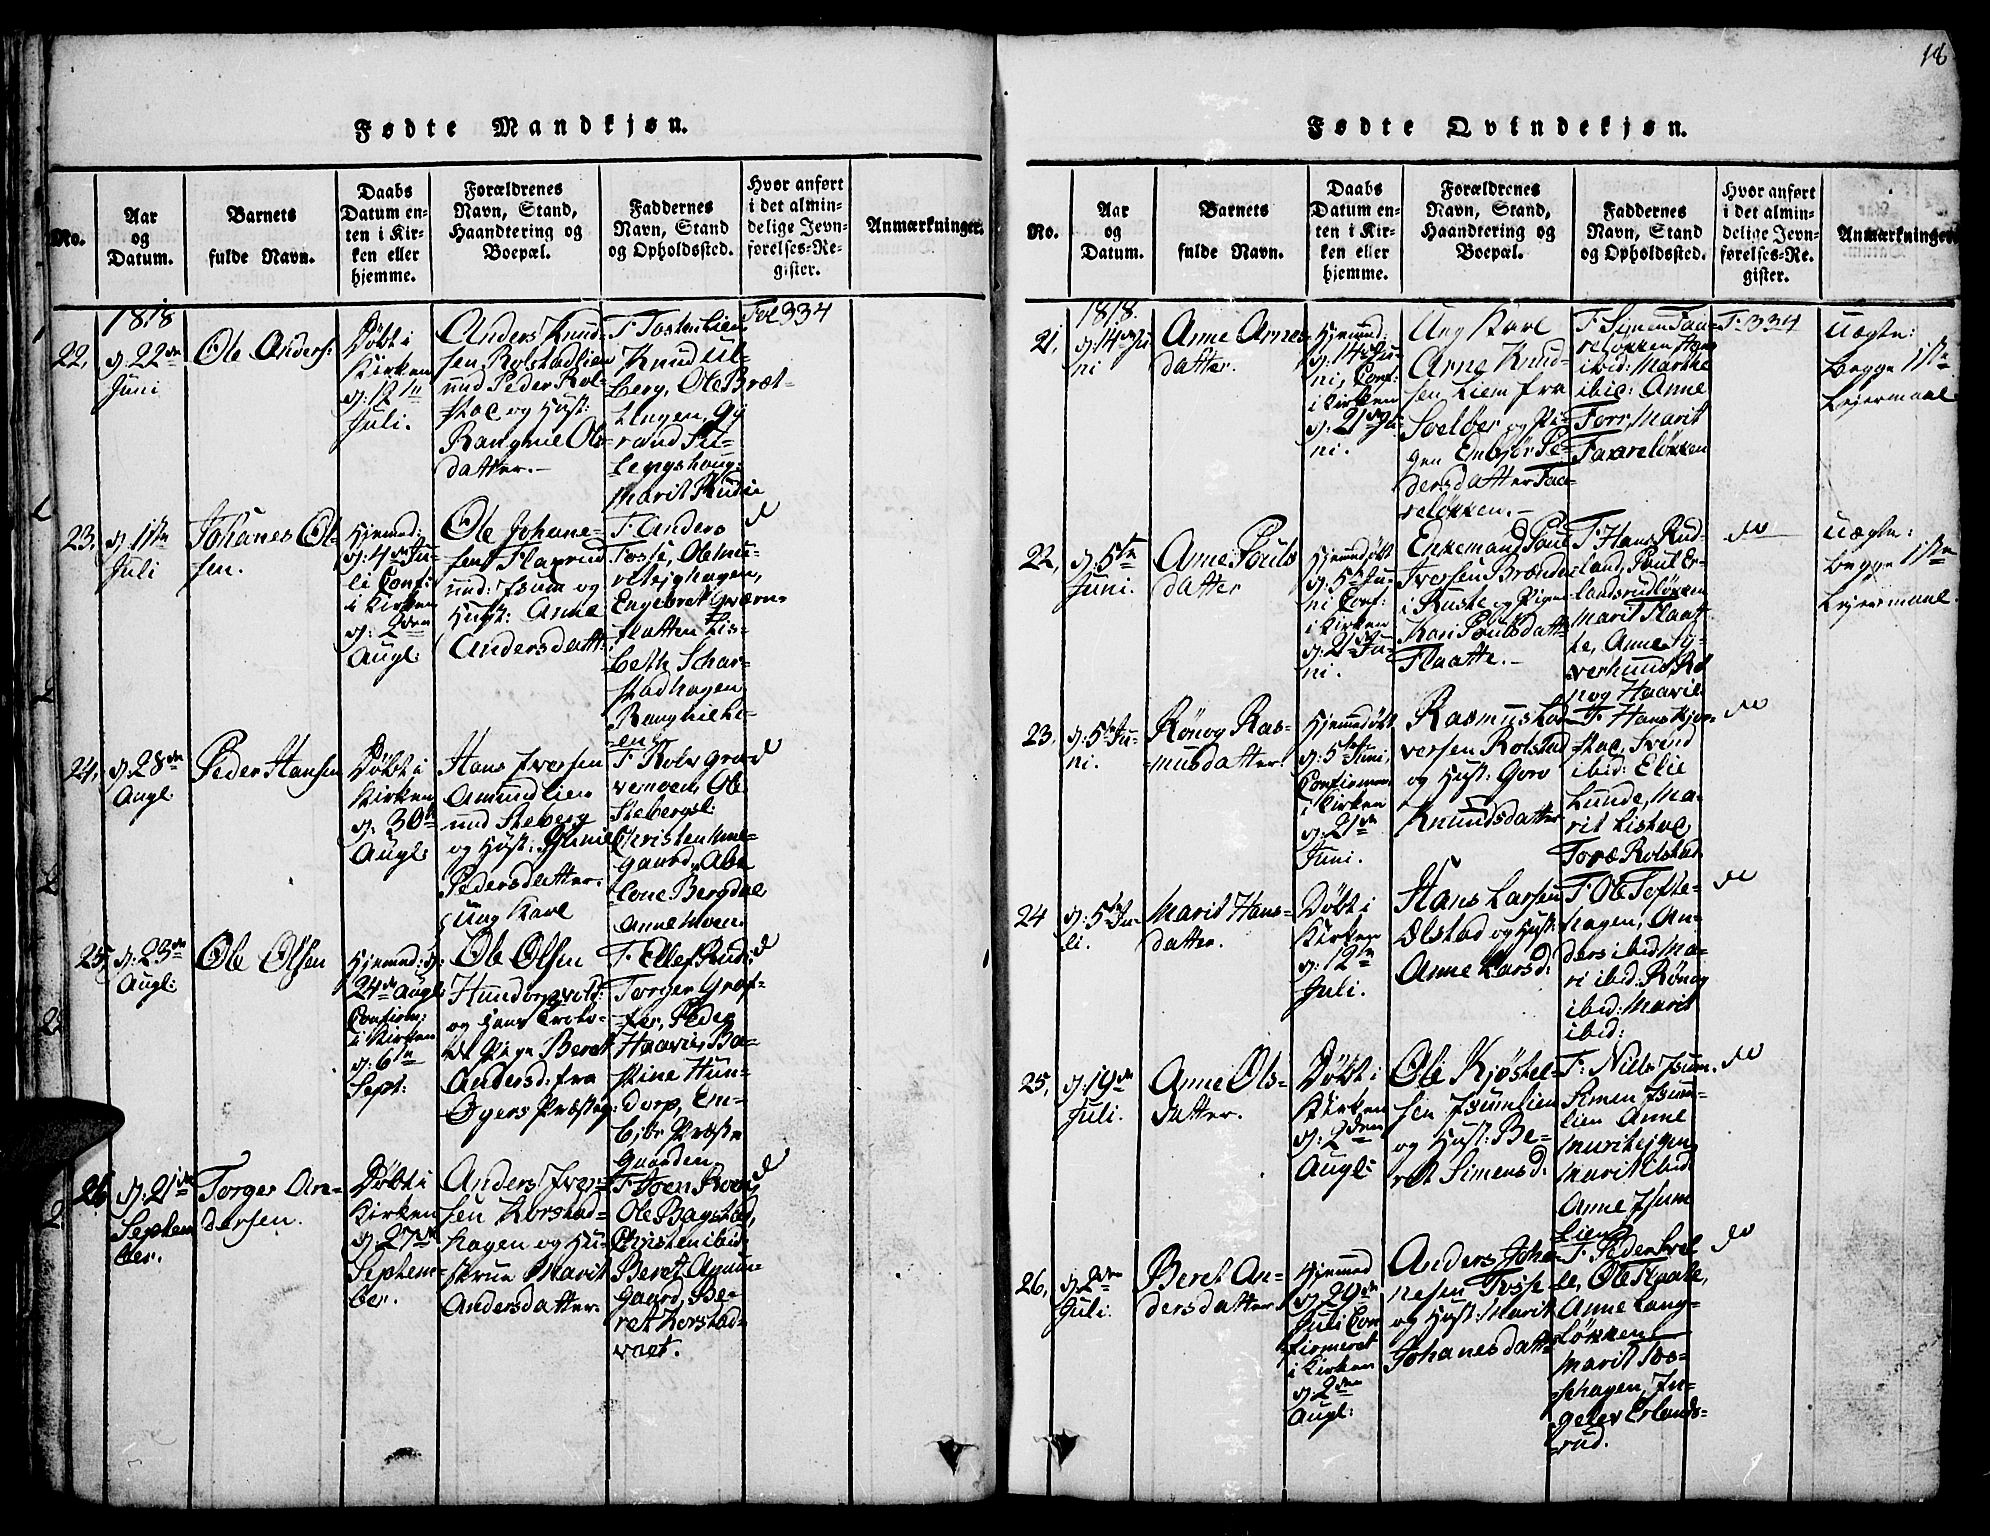 18
Fødte Mandkjøn.
No.
Aar
og
Datum.
Barnets
fulde Navn.
Daabs
Datum en-
ten i Kir-
ken eller
hjemme.
Forældrenes
Navn, Stand,
Haandtering og
Boepæl.
Faddernes
Navn, Stand
og Opholdssted.
Hvor anført
i det almin-
delige Jevn-
førelses-Re-
gister.
Anmærkninger.
1818
22,
d: 22de
Juni
Ole Anders:
Døbt i
Kirken
d: 12te
Juli.
Anders Knud-
sen Rolstadlien
und Peder Rol-
stad og Hust:
Rangnil Ols-
datter.-
F. Tosten Lien
Knud Ul-
berg, Ole Bræt-
Marit Rudi
Fol 334
23,
d: 1ste
Juli
Johanes Ol-
sen.
Hiemed:
d: 4de Ju-
li Conf:
i Kirken
d: 2den
Augl:
Ole Johane-
sen Flaprud
und: Isum og
Hust: Anne
Andersdatt:
F. Anders
Tosse, Ole
Engebret Qværn-
flatten Lis-
beth Schar-
stadhagen
do
24,
d: 28de
Augl:
Peder Hansen
Døbt i
Kirken
d: 30te
Augl:
Hans Iversen
Amundlien
und Steberg
og Hust:
Pedersdatter.
Ole
Stebergsl:
Christen
gaard,
Lone Bergdal
Anne Moen
do
25,
d: 23de
Augl:
Ole Olsen
Hiemed: d:
24de Augl:
Confirm:
i Kirken
d: 6te
Sept:
Ung Karl
Ole Olsen
Hundorpvold:
og hans
Pige Beret
Andersd: fra
Øyers Præsteg:
F. Ellef Rudi
Torger Græf-
fer, Peder
Haavie, Ba-
stine Hun-
dorp, Em-
bjør Præste
gaarden.
do
26,
d: 21de
Septem
ber.
Torger An-
dersen.
Døbt i
Kirken
d: 27de
Septem-
ber.
Anders Iver-
sen Korstad-
hagen og Hu-
strue Marit
Andersdatter.
Ole Bagstad,
Christen ibid:
Beret Amun-
gaard, Be-
ret Korstad-
vaet.
do
Fødte Qvindekjøn.
No.
Aar
og
Datum.
Barnets
fulde Navn.
Daabs
Datum en-
ten i Kir-
ken eller
hjemme.
Forældrenes
Navn, Stand,
Haandtering og
Boepæl.
Faddernes
Navn, Stand
og Opholdssted.
Hvor anført
i det almin-
delige Jevn-
førelses-Re-
gister.
Anmærkninger.
1818.
21,
d: 14de Ju
ni
Anne Arnes-
datter.
Hjemmed:
d: 14de Ju-
ni, Conf:
i Kirken
d: 21de Ju-
ni.
Ung Karl
Arne Knud-
sen Liem fra
Soelber og Pi-
gen Embjør Pe-
dersdatter Faa-
reløkken.-
F. Simen Faa-
reløkken Hans
ibid: Marthe
ibid: Anne
Forr, Marit
Faareløkken
F. 334
Uægte:
begge 1ste
Lejermaal
22,
d: 5te
Juni.
Anne Pouls
datter
Hjemmedøbt
d: 5te Ju-
ni Conf:
i Kirken
d: 21de Ju-
ni.
Enkemand Poul
Iversen Brænden
i Ruste og Pigen
Kari Poulsdatt:
Flaatte.-
F. Hans Rud-
land, Poul Er-
landsrudløkken
Marit Flaat-
te, Anne Sy-
verhuus Rø
nog Haavie
do
Uægte:
begge 1ste
Lejermaal.
23,
d: 5te Ju-
ni.
Rønog Ras-
musdatter.
Hjemmedøbt
d: 5te Juni,
Confirmeret
i Kirken
d: 21de
Juni.
Rasmus Lar-
versen Rolstad
og Hust: Goro
Knuudsdatter
F. Hans Kjør-
stad, Svend
ibid: Elie
Lunde, Ma-
rit Listad,
Toræ Rolstad
do
24
d: 5te Ju-
li.
Marit Hans-
datter.
Døbt i
Kirken
d: 12te
Juli.
Hans Larsen
Ølstad og Hust:
Anne Larsd:
F. Ole Tofte-
hagen, An-
ders ibid Ma-
ri ibid: Rønog
ibid: Marit
ibid:
do
25,
d: 19de
Juli.
Anne Ols-
datter.
Døbt i
Kirken
d: 2den
Augl:
Ole Kjøstel-
sen Isumlien
og Hust: Be-
ret Simensd:
F. Niels Isum.
Simen Isum-
lien Anne
Marit Ibid
Anne Isum
Lien
do
26,
d: 2den
Juli.
Beret An-
dersdatter.
Hjemmed
d: 29de
Juli Con
firmeret
i Kirken
d: 2den
Augl:
Anders Joha-
nesen Tosse
og Hust: Marit
Johanesdatt:
Ole Flaate,
Anne Lang-
løkken
Marit Tos-
sehagen, In-
gelev Erlands-
rud.
do